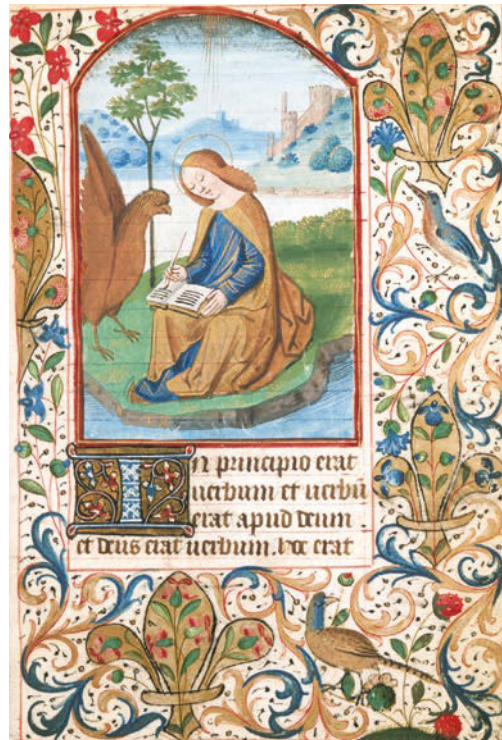 In principio erat
uerbum et uerbū
erat apud deum .
et deus erat uerbum. hoc erat